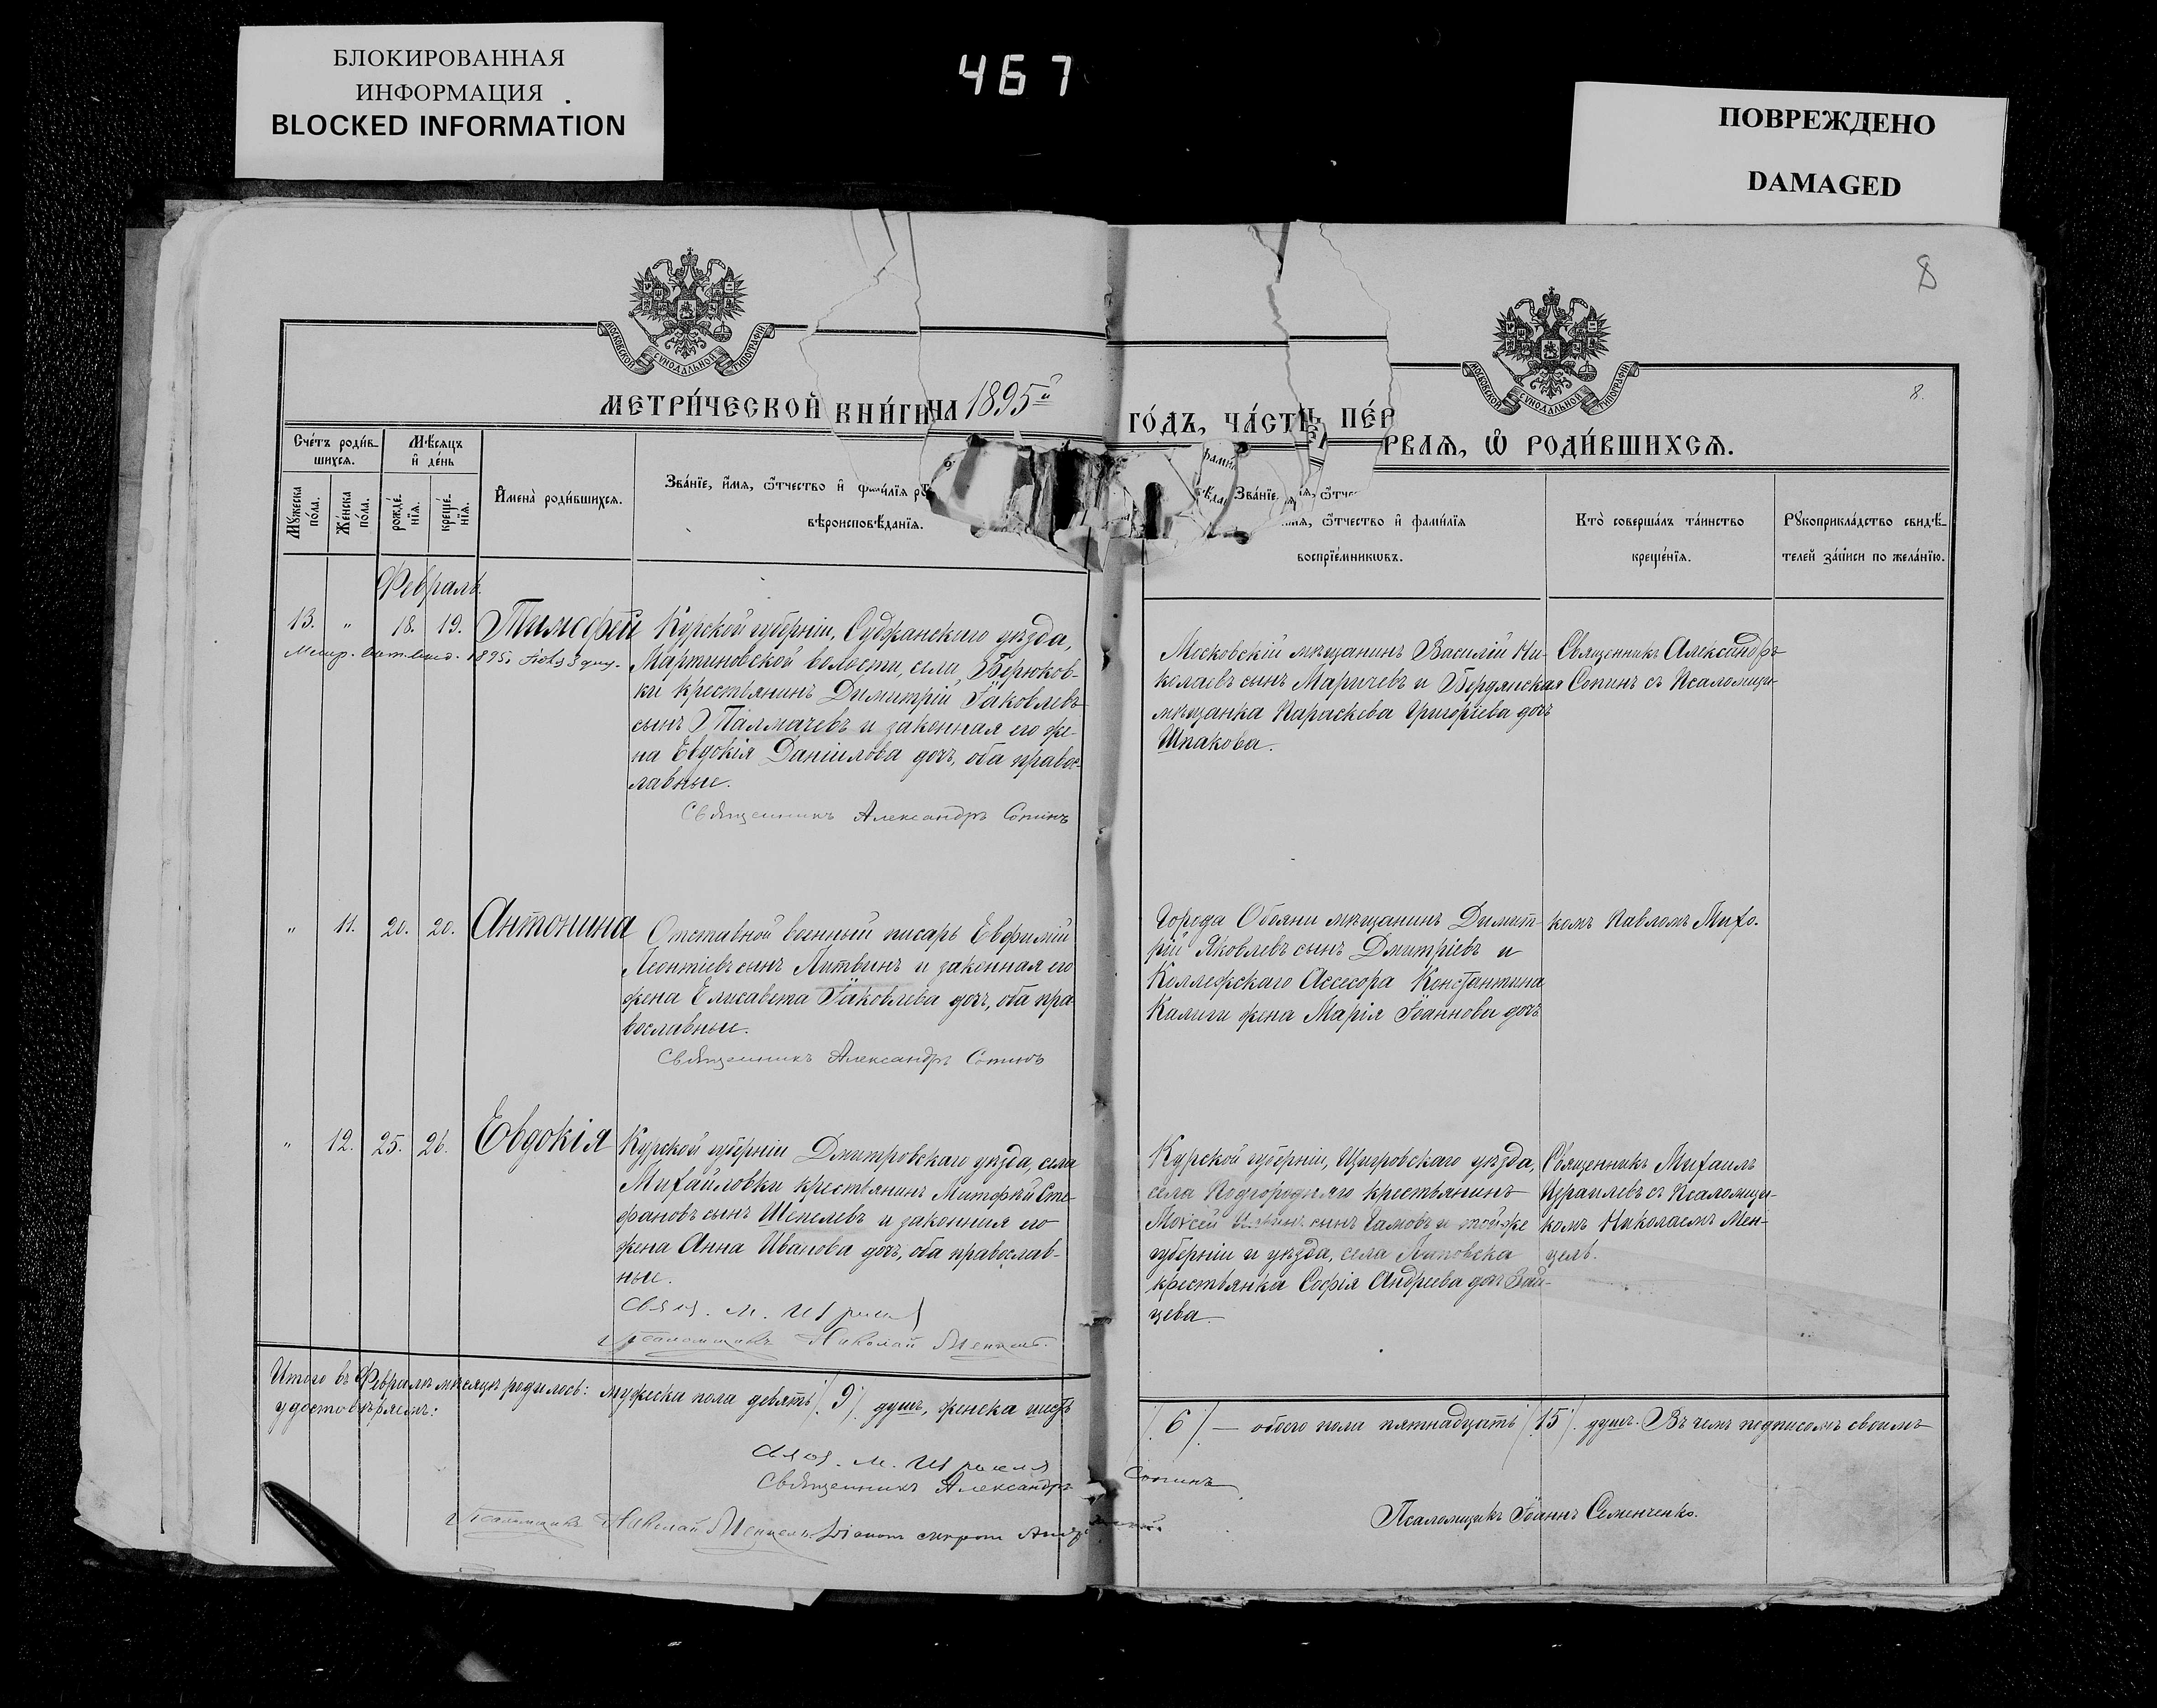 БЛОКИРОВАННАЯ
ИНФОРМАЦИЯ
BLOCKED INFORMATION
467
ПОВРЕЖДЕНО
DAMAGED
8
МОСКОВСКОЙ СѴНОДАЛЬНОЙ ТИПОГРАФІИ
МОСКОВСКОЙ СѴНОДАЛЬНОЙ ТИПОГРАФІИ
8.
МЕТРИ́ЧЕСКОЙ КНИ́ГИ НА 1895й
ГО́ДЪ, ЧА́СТЬ ПЕ́РВАЯ, Ѡ РОДИ́ВШИХСЯ.
Сче́тъ роди́в-
шихся.
Мѣсяцъ
и де́нь
Мꙋжеска
по́ла.
Же́нска
по́ла.
рожде́-
нїя.
креще́-
нїя.
Имена̀ роди́вшихся.
Зва́нїе, и́мя, ѻ́тчество и фами́лїя
вѣроисповѣ́данїя.
Зва́нїе
ѻ́тчество и фами́лїя
воспрїе́мникѡвъ.
Кто̀ соверша́лъ та́инство
креще́нїя.
Рꙋкоприкла́дство свидѣ́-
телей за́писи по жела́нїю.
Февраль.
13. „ 18. 19. Тимофей
1895,
Курской губерніи, Суджанскаго уѣзда,
Мартиновской волости, села Бѣрюков-
ки крестьянинъ Димитрій Іаковлевъ
сынъ Талмачевъ и законная его же-
на Евдокія Даніилова дочь, оба правос-
лавные.
Священникъ Александръ Сопинъ
Московскій мѣщанинъ Василій Ни-
колаевъ сынъ Маричевъ и Бердянская
мѣщанка Параскева Григоріева дочь
Шпакова.
Священникъ Александръ
Сопинъ съ Псаломщи-
„ 11. 20. 20. Антонина
Отставной военный писарь Евфимій
Леонтіевъ сынъ Литвинъ и законная его
жена Елисавета Іаковлева дочь, оба пра-
вославные.
Священникъ Александръ Сопинъ
Города Обояни мѣщанинъ Димит-
рій Яковлевъ сынъ Дмитріевъ и
Коллежскаго Ассесора Константина
Калиги жена Марія Іоаннова дочь
комъ Павломъ Михо.
„ 12. 25. 26. Евдокія
Курской губерніи Дмитровскаго уѣзда, села
Михайловки крестьянинъ Митофкй Сте-
фановъ сынъ Шепелевъ и законная его
жена Анна Иванова дочь, оба православ-
ные.
Свящ. М.
Псаломщикъ Николай Менцель.
Курской губерніи, Щигровскаго уѣзда,
села Подгородняго крестьянинъ
Моѵсей сынъ Гамовъ и той же
губерніи и уѣзда, села Липовска
крестьянка Софія Андреева дочь Зай-
цева.
Священникъ Михаилъ
Израилевъ съ Псаломщи-
комъ Николаемъ Мен-
цель.
Итого въ Февралѣ мѣсяцѣ родилось: мужеска пола девять /9/ душъ, женска шесть
/6/ — обоего пола пятнадцать /15/ душъ. Въ чемъ подписомъ своимъ
удостовѣряемъ:
Свящ. М.
Священникъ Александръ Сопинъ
Псаломщикъ Николай Менцель.
Псаломщикъ Іоаннъ Семенченко.